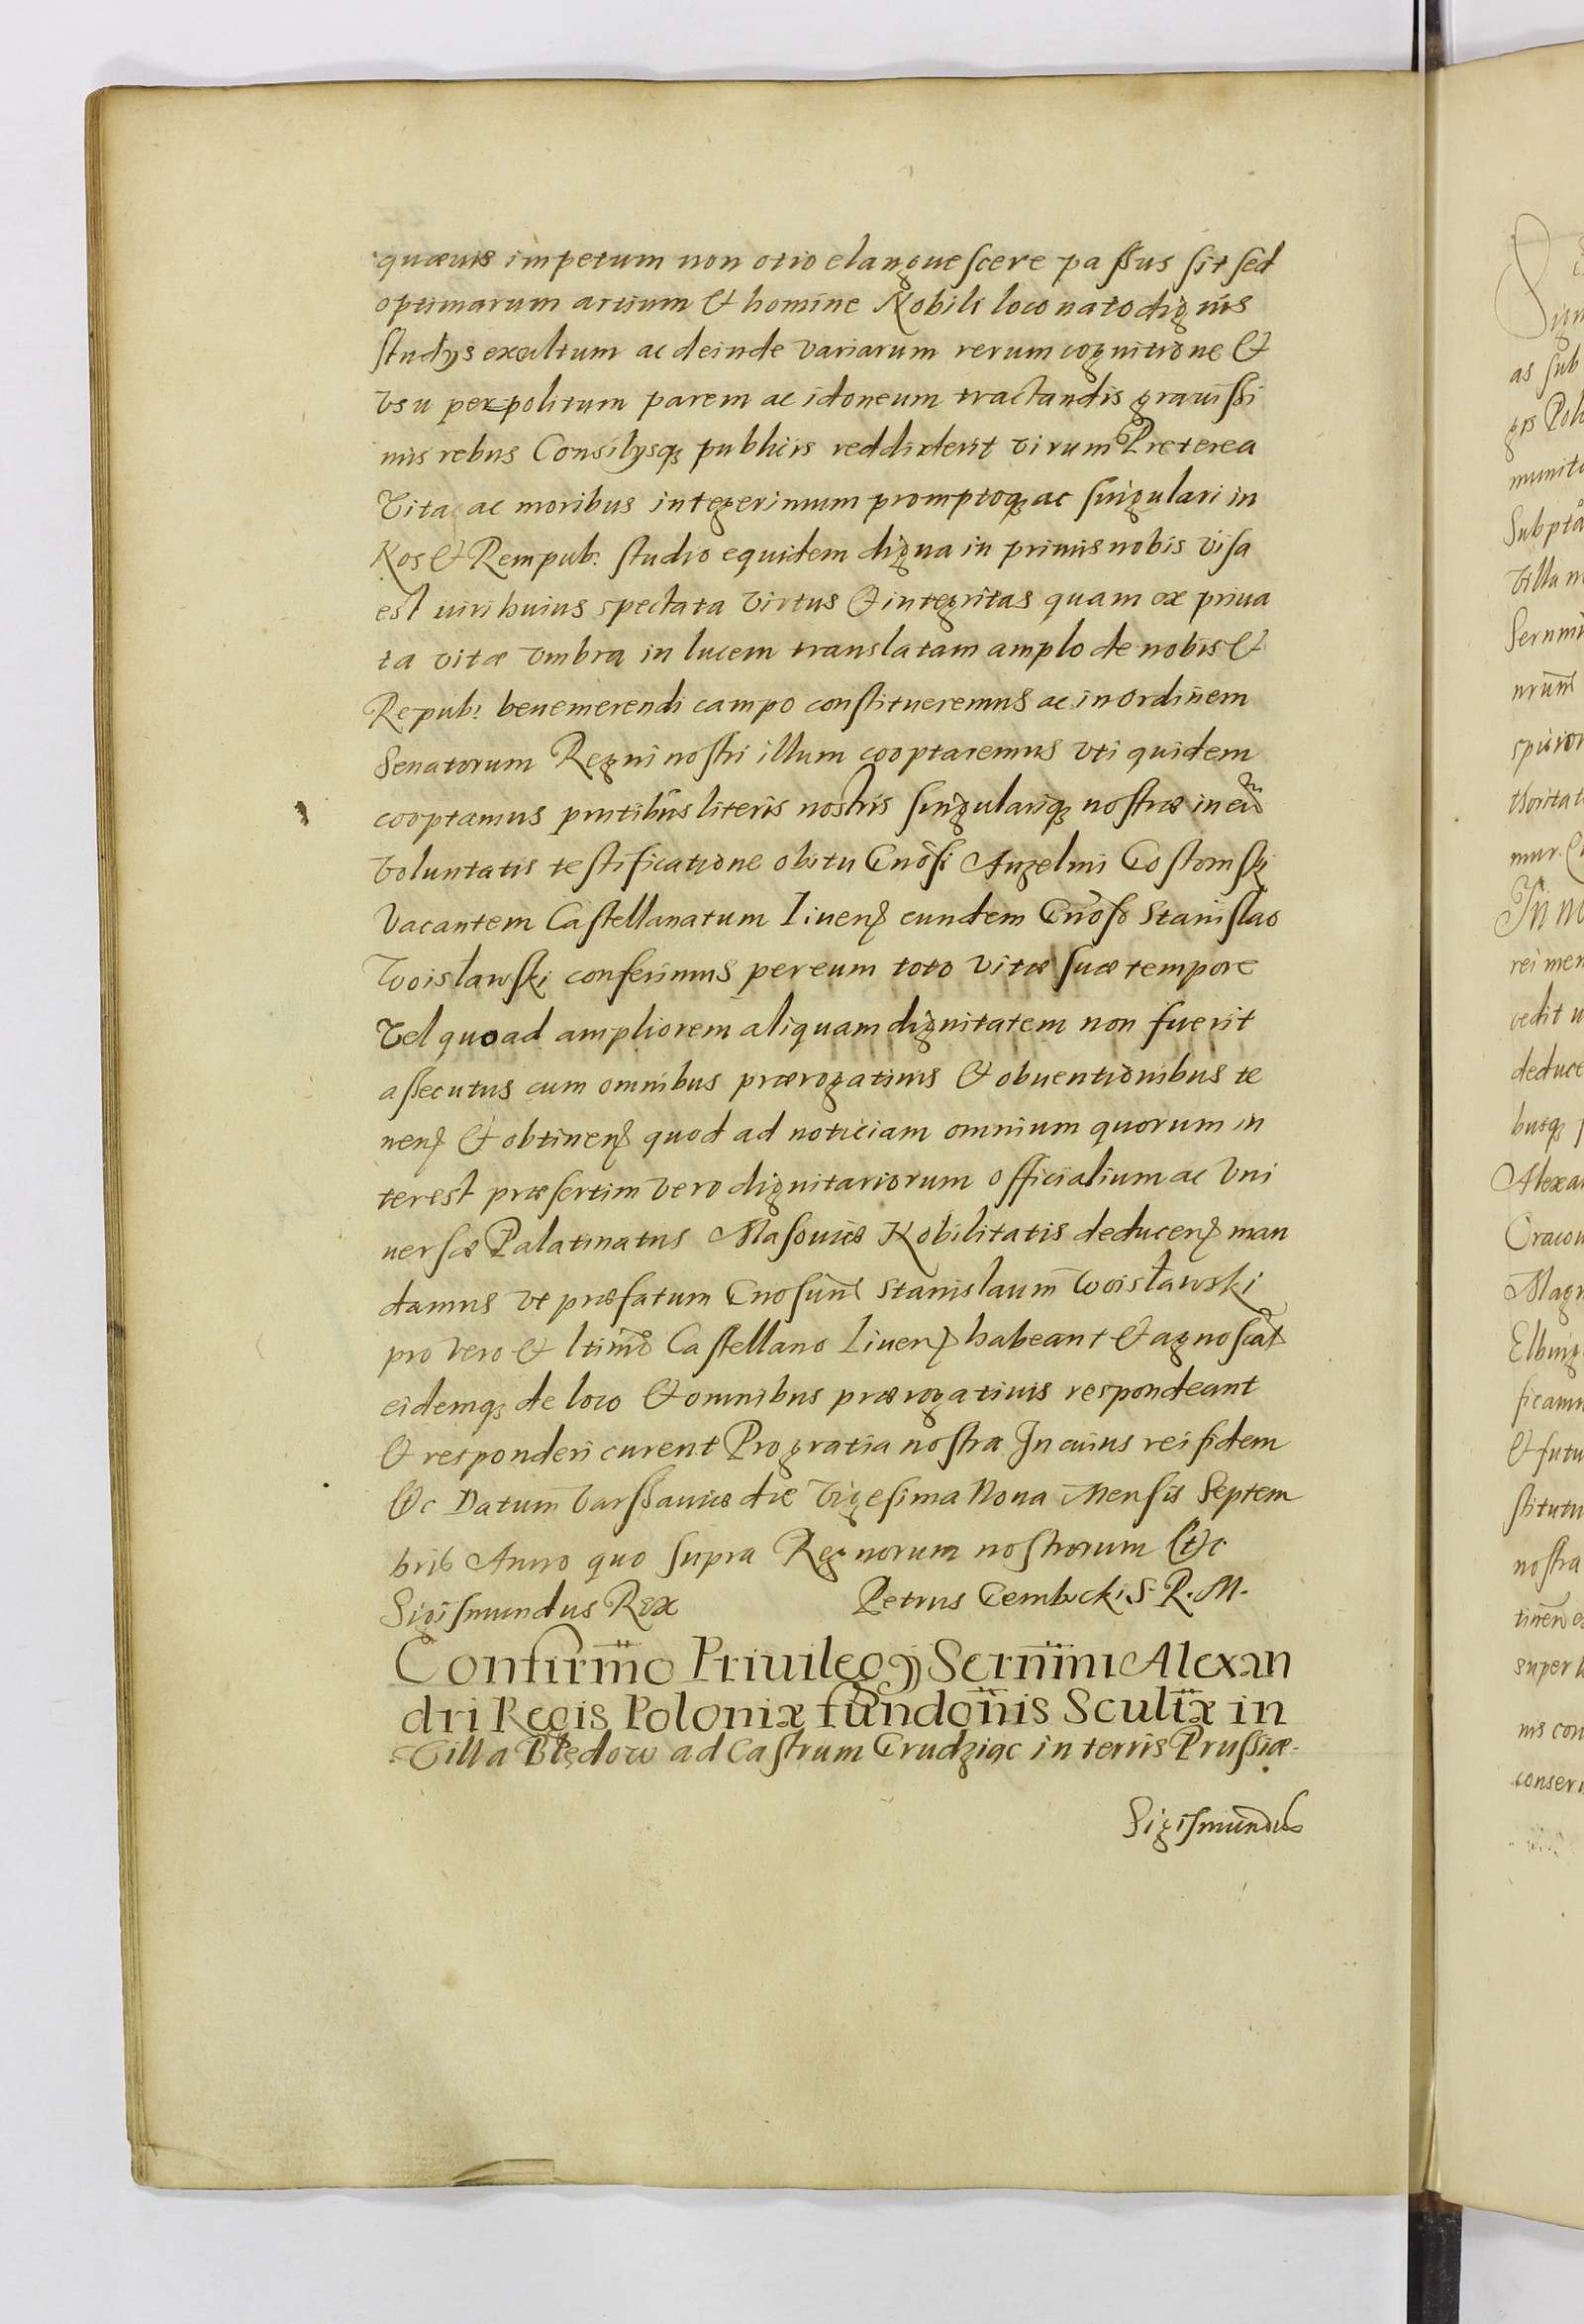 quæuis impetum non otio elanguescere passus sit sed
optimarum artium & homine Nobili loco nato dignis
studÿs excultum ac deinde variarum rerum cognitione &
vsu perpolitum parem ac idoneum tractandis grauissi
mis rebus Consilÿsq3 publicis reddiderit virum Preterea
Vita ac moribus integerimum promptoq3 ac singulari in
Nos & Rempub: studio equidem digna in primis nobis visa
est viri huius spectata virtus & integritas quam ex priua
ta vitæ vmbra in lucem translatam amplo de nobis &
Repub: benemerendi campo constitueremus ac in ordinem
Senatorum Regni nostri illum cooptaremus vti quidem
cooptamus pñtibus literis nostris singulariq3 nostræ in eū
voluntatis testificatione obitu Gñosi Anzelmi Gostomski
Vacantem Castellanatum Liueñ eundem Gñoso Stanislao
Woisławski conferimus per eum toto vitæ suæ tempore
Vel quoad ampliorem aliquam dignitatem non fuerit
assecutus cum omnibus prærogatiuis & obuentionibus te
neñ & obtineñ quod ad noticiam omnium quorum in
terest præsertim vero dignitariorum officialium ac Vni
uersæ Palatinatus Masouiæ Nobilitatis deduceñ man
damus vt præfatum Gnosum̃ Stanislaum Woisławski
pro vero & ltimõ Castellano Liueñ habeant & agnoscāt
eidemq3 de loco & omnibus prærogatiuis respondeant
& responderi curent Pro gratia nostra In cuius rei fidem
&c Datum Varssauiæ die Vigesima Nona Mensis Septem
bris Anno quo supra Regnorum nostrorum &c
Sigismundus Rex Petrus Gembicki S. R. M.
Confirm̃o Priuilegÿ Sern̄mi Alexan
dri Regis Poloniæ fundoñis Scultiæ in
Villa Błędow ad Castrum Grudziąc in terris Prussiæ.
Sigismundus
as sub
gis Pol
Alexa
Magn
ficam
& futu
stitutu
nostra
super
nis con